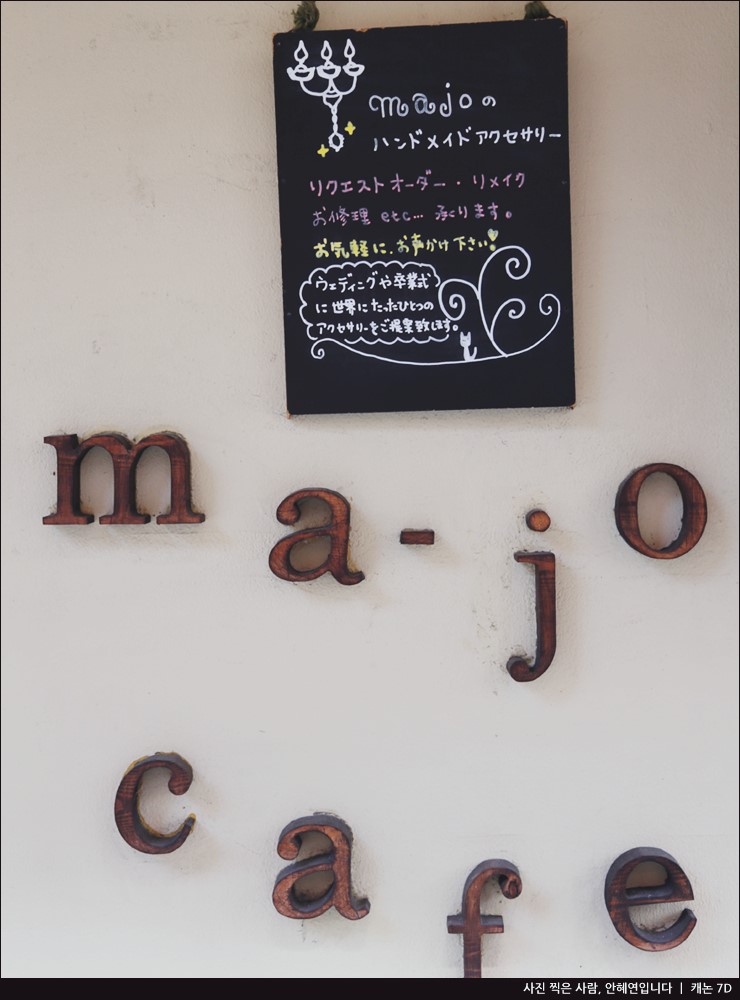 majoの
ハンドメイドアクセサリー
リクエストオーダー・リメイク
お修理 etc… 承ります。
お気軽に、お声かけ下さい!
ウェディングや卒業式
に世界にたったひとつの
アクセサリーをご提案致します。
ma-jo
cafe
사진 찍은 사람, 안혜연입니다 | 캐논 7D